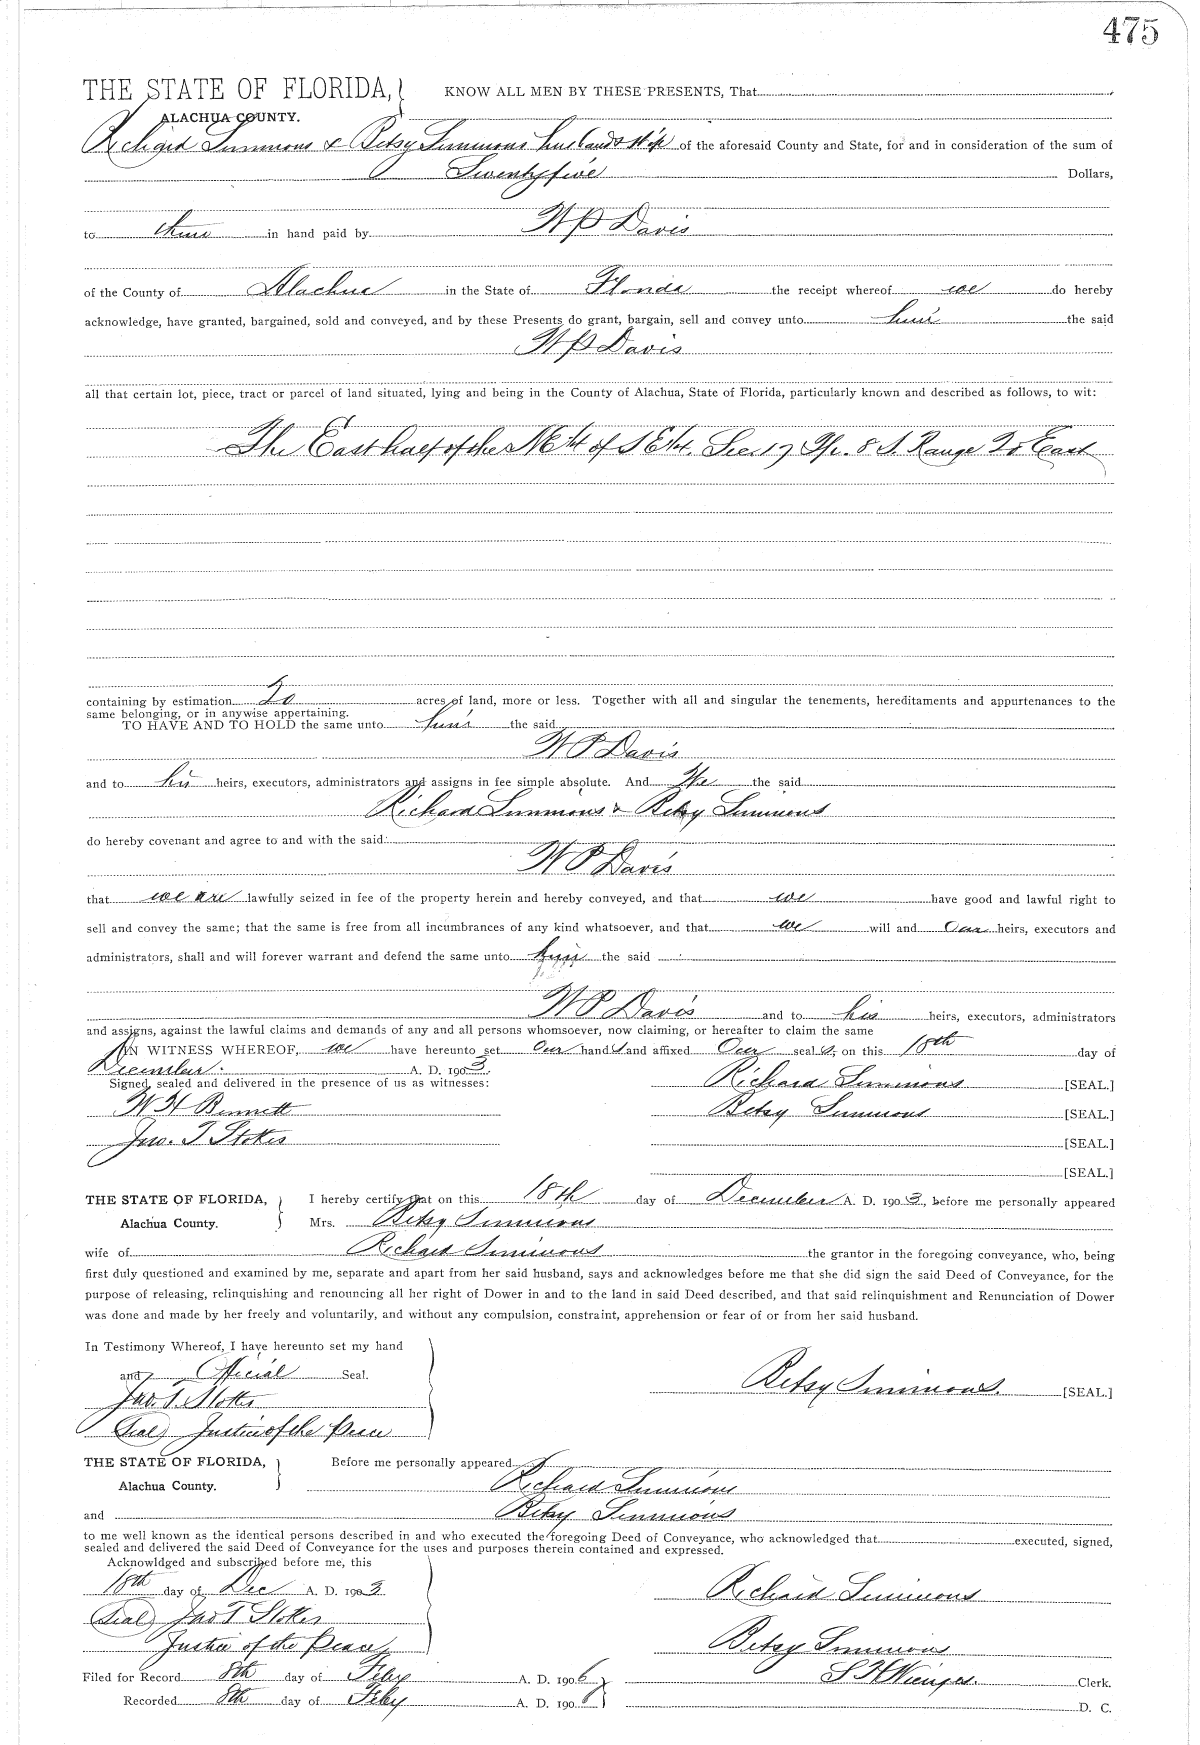 475
THE STATE OF FLORIDA, KNOW ALL MEN BY THESE PRESENTS, That
ALACHUA COUNTY.
Richard Simmons & Betsy Simmons husband & wife of the aforesaid County and State, for and in consideration of the sum of
Twentyfive Dollars,
to them in hand paid by W P Davis
of the County of Alachua in the State of Florida the receipt whereof we do hereby
acknowledge, have granted, bargained, sold and conveyed, and by these Presents do grant, bargain, sell and convey unto him the said
W P Davis
all that certain lot, piece, tract or parcel of land situated, lying and being in the County of Alachua, State of Florida, particularly known and described as follows, to wit:
The East half of the NE 1/4 of SE 1/4. Sec. 17 Tp. 8 S. Range 20 East
containing by estimation 20 acres of land, more or less. Together with all and singular the tenements, hereditaments and appurtenances to the
same belonging, or in anywise appertaining.
TO HAVE AND TO HOLD the same unto him the said
W P Davis
and to his heirs, executors, administrators and assigns in fee simple absolute. And We the said
Richard Simmons & Betsy Simmons
do hereby covenant and agree to and with the said
W P Davis
that we are lawfully seized in fee of the property herein and hereby conveyed, and that we have good and lawful right to
sell and convey the same; that the same is free from all incumbrances of any kind whatsoever, and that we will and Our heirs, executors and
administrators, shall and will forever warrant and defend the same unto him the said
W P Davis and to his heirs, executors, administrators
and assigns, against the lawful claims and demands of any and all persons whomsoever, now claiming, or hereafter to claim the same
IN WITNESS WHEREOF, we have hereunto set Our hands and affixed Our seals, on this 18th day of
December. A. D. 1903.
Signed, sealed and delivered in the presence of us as witnesses: Richard Simmons [SEAL.]
W H Bennett Betsy Simmons [SEAL.]
Jno. T Stokes [SEAL.]
[SEAL.]
THE STATE OF FLORIDA, I hereby certify that on this 18th day of December A. D. 1903, before me personally appeared
Alachua County. Mrs. Betsy Simmons
wife of Richard Simmons the grantor in the foregoing conveyance, who, being
first duly questioned and examined by me, separate and apart from her said husband, says and acknowledges before me that she did sign the said Deed of Conveyance, for the
purpose of releasing, relinquishing and renouncing all her right of Dower in and to the land in said Deed described, and that said relinquishment and Renunciation of Dower
was done and made by her freely and voluntarily, and without any compulsion, constraint, apprehension or fear of or from her said husband.
In Testimony Whereof, I have hereunto set my hand
and Official Seal.
Betsy Simmons. [SEAL.]
Jno. T. Stokes
(Seal) Justice of the Peace
THE STATE OF FLORIDA, Before me personally appeared
Alachua County. Richard Simmons
and Betsy Simmons
to me well known as the identical persons described in and who executed the foregoing Deed of Conveyance, who acknowledged that executed, signed,
sealed and delivered the said Deed of Conveyance for the uses and purposes therein contained and expressed.
Acknowldged and subscribed before me, this
18th day of Dec A. D. 1903 Richard Simmons
(Seal) Jno T Stokes
Justice of the Peace Betsy Simmons
Filed for Record 8th day of Feby A. D. 1906 S H Wienges. Clerk.
Recorded 8th day of Feby A. D. 1906 D. C.